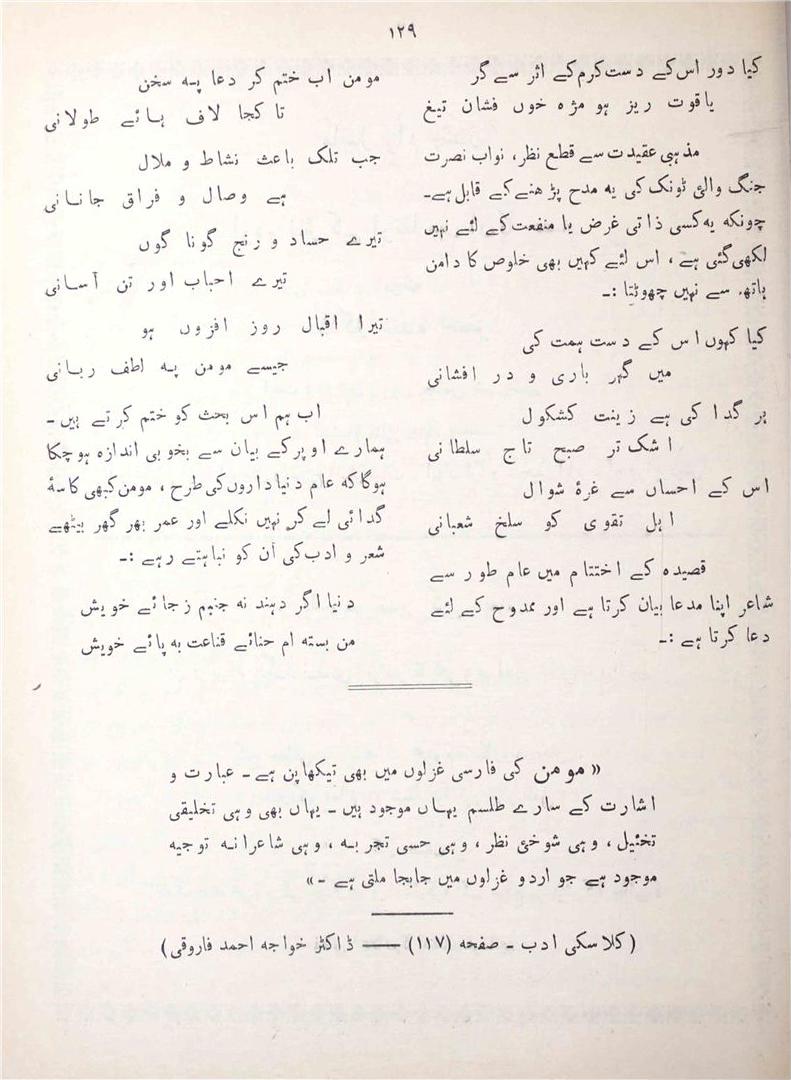 ۱۲۹
کیا دور اس کے دست کرم کے اثر سے گر
یاقوت ریز ہو مژہ خوں فشان تیغ
مذہبی عقیدت سے قطع نظر، نواب نصرت
جنگ والئ ٹونک کی یہ مدح پڑھنے کے قابل ہے۔
چونکہ یہ کسی ذاتی غرض یا منفعت کے لئے نہیں
لکھی گئی ہے ، اس لئے کہیں بھی خلوص کا دامن
ہاتھ سے نہیں چھوٹتا :۔
کیا کہوں اس کے دست ہمت کی
میں گہر باری و در افشانی
ہر گدا کی ہے زینت کشکول
اشک تر صبح تاج سلطانی
اس کے احساں سے غرۂ شوال
اہل تقوی کو سلخ شعبانی
قصیدہ کے اختتام میں عام طور سے
شاعر اپنا مدعا بیان کرتا ہے اور ممدوح کے لئے
دعا کرتا ہے :۔
مومن اب ختم کر دعا پہ سخن
تا کجا لاف ہائے طولانی
جب تلک باعث نشاط و ملال
ہے وصال و فراق جانانی
تیرے حساد و رنج گونا گوں
تیرے احباب اور تن آسانی
تیرا اقبال روز افزوں ہو
جیسے مومن پہ لطف ربانی
اب ہم اس بحث کو ختم کرتے ہیں۔
ہمارے اوپر کے بیان سے بخوبی اندازہ ہوچکا
ہوگا کہ عام دنیا داروں کی طرح ، مومن کبھی کاسۂ
گدائی لے کر نہیں نکلے اور عمر بھر گھر بیٹھے
شعر و ادب کی آن کو نباہتے رہے :۔
دنیا اگر دہند نہ جنبم ز جائے خویش
من بستہ ام حنائے قناعت بہ پائے خویش
«مومن کی فارسی غزلوں میں بھی تیکھاپن ہے۔ عبارت و
اشارت کے سارے طلسم یہاں موجود ہیں۔ یہاں بھی وہی تخلیقی
تخئیل ، وہی شوخئ نظر ، وہی حسی تجربہ ، وہی شاعرانہ توجیہ
موجود ہے جو اردو غزلوں میں جابجا ملتی ہے ۔»
(کلاسکی ادب ۔ صفحہ (۱۱۷) — ڈاکٹر خواجہ احمد فاروقی)